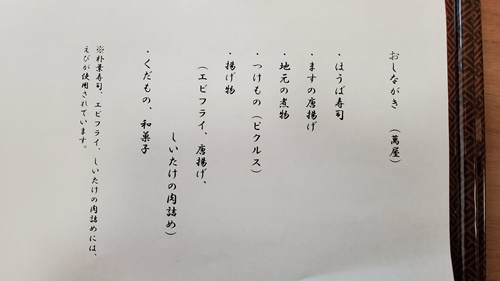 おしながき （萬屋）
・ほうば寿司
・ますの唐揚げ
・地元の煮物
・つけもの（ピクルス）
・揚げ物
（エビフライ、唐揚げ、
しいたけの肉詰め）
・くだもの、和菓子
※朴葉寿司、エビフライ、しいたけの肉詰めには、
えびが使用されています。